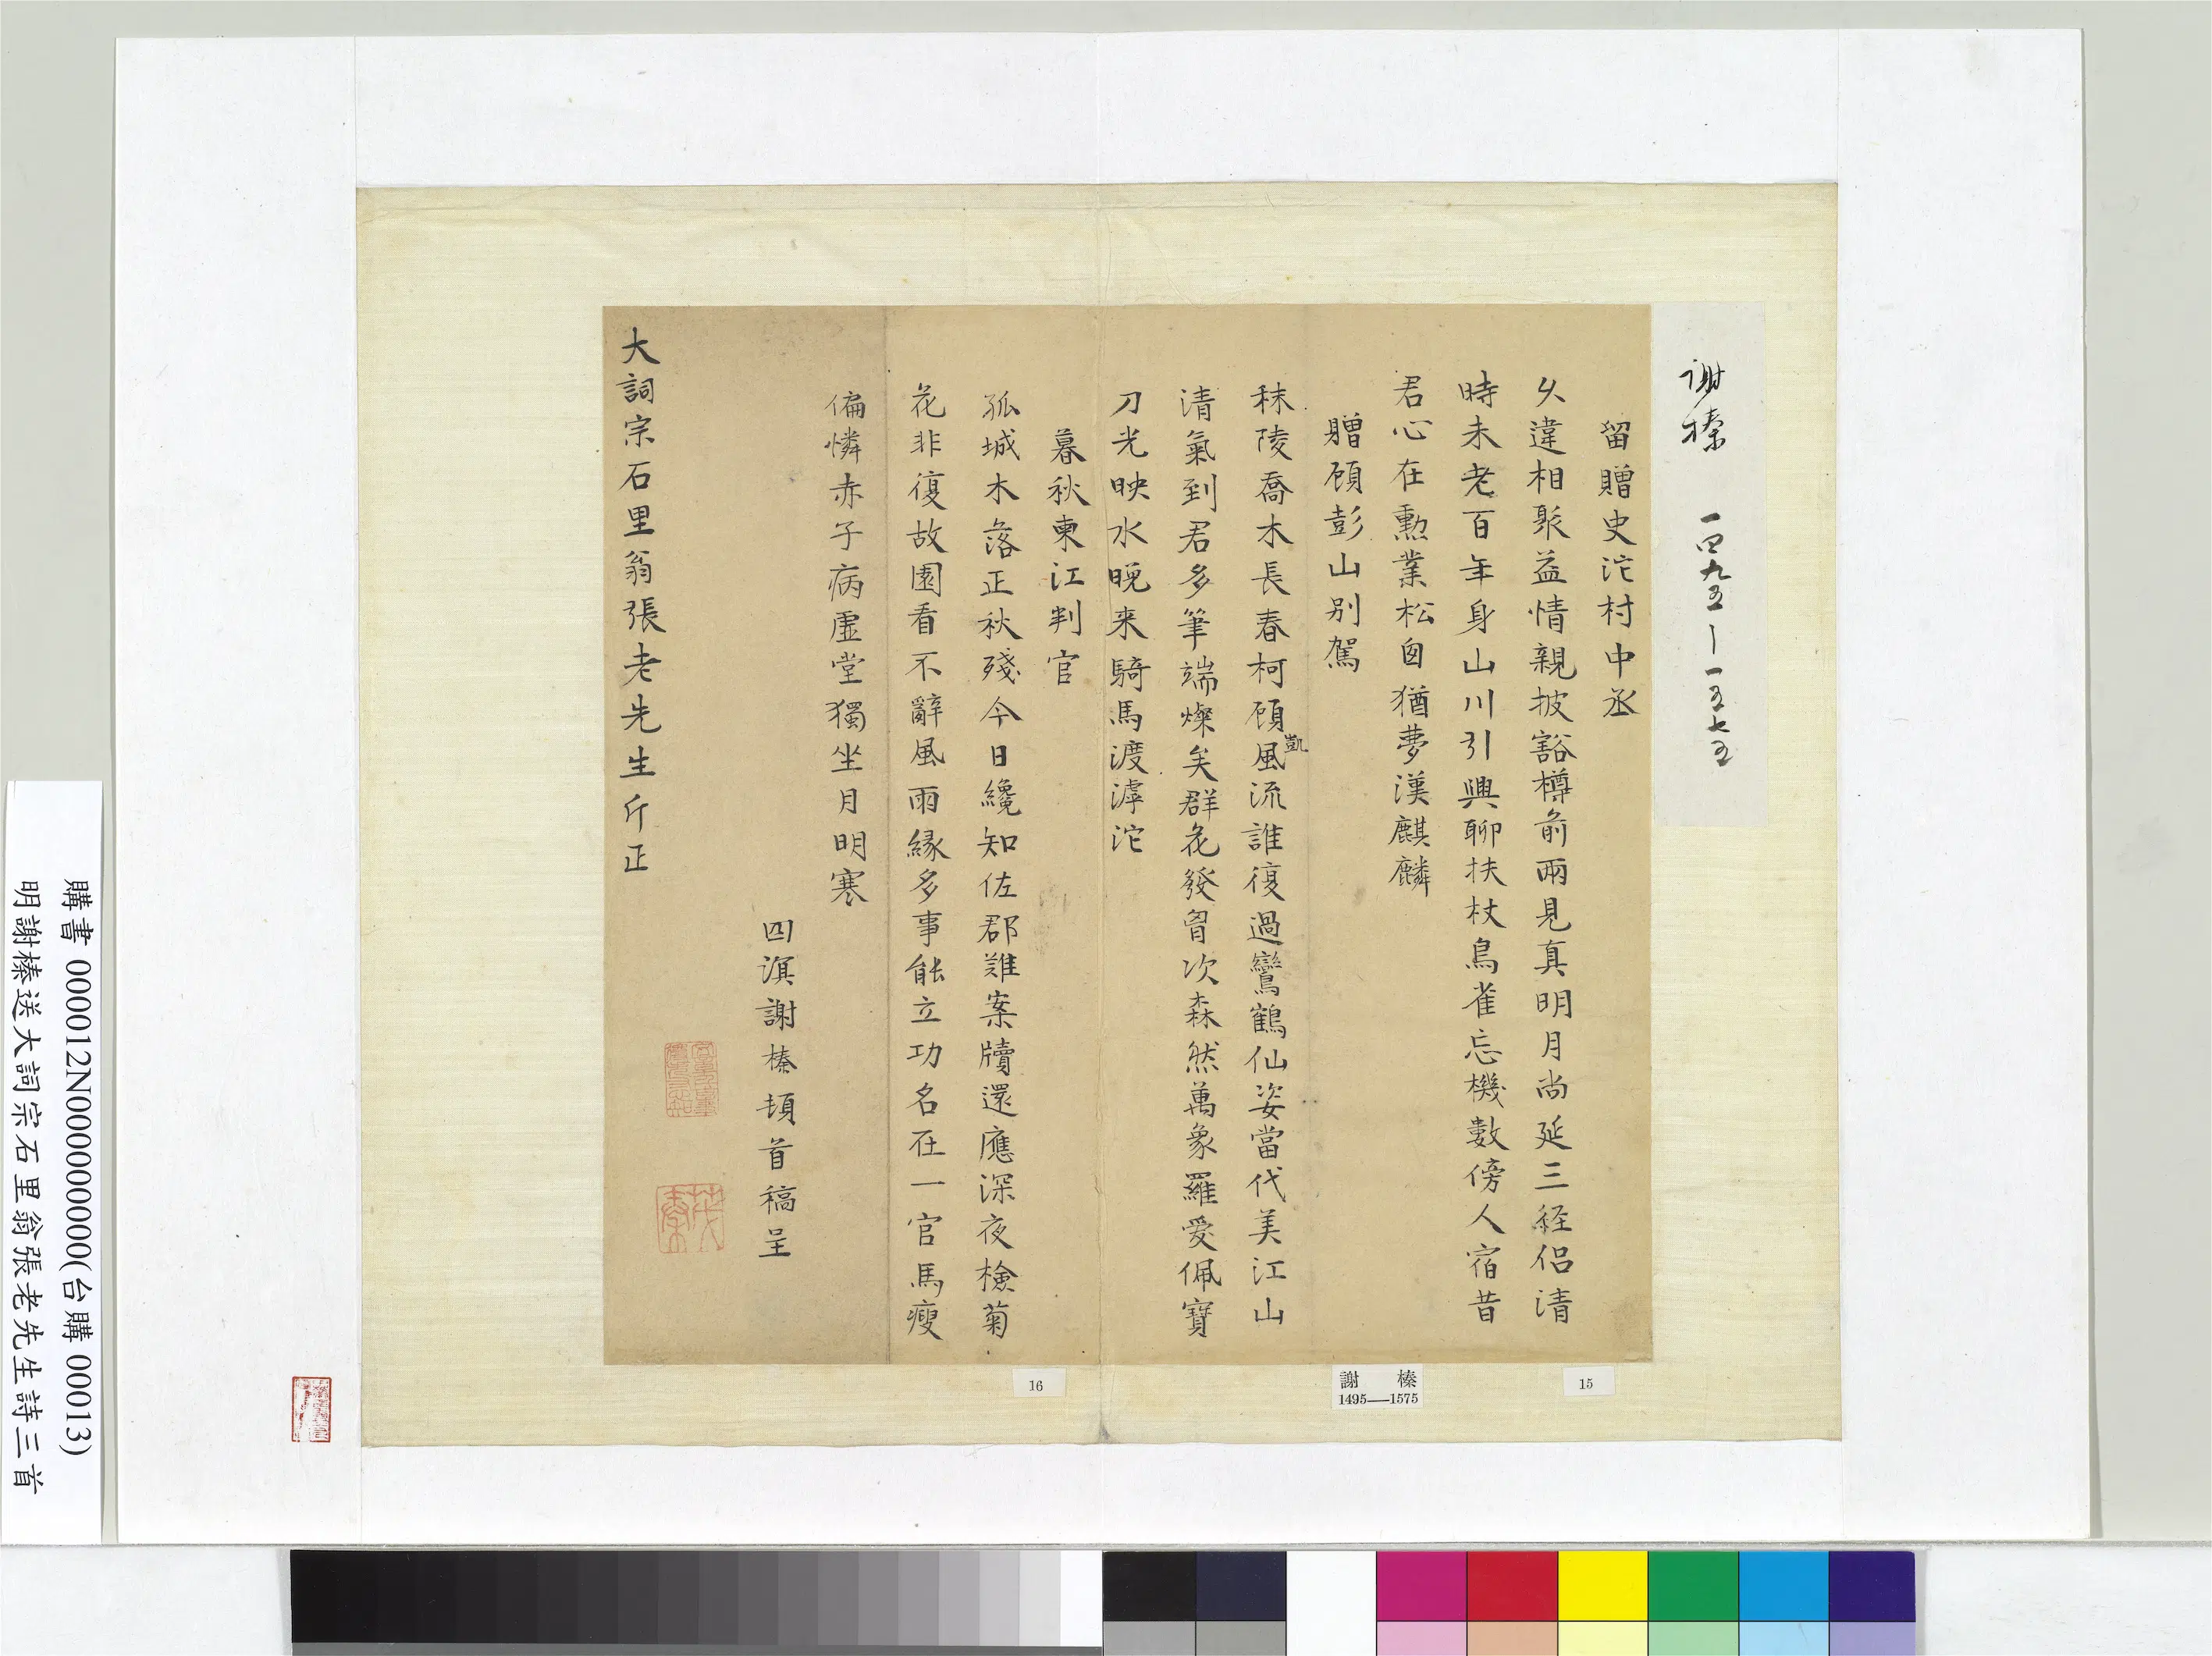 謝榛 一四九五—一五七五
留贈史沱村中丞
久違相聚益情親披豁樽前兩見真明月尚延三經侶清
時未老百年身山川引興聊扶杖鳥雀忘機數傍人宿昔
君心在勳業松囱猶夢漢麒麟
贈顧彭山別駕
秣陵喬木長春柯顧凱風流誰復過鸞鶴仙姿當代美江山
清氣到君多筆端燦矣群花發胷次森然萬象羅愛佩寶
刀光映水晚来騎馬渡滹沱
暮秋柬江判官
孤城木落正秋殘今日纔知佐郡難案牘還應深夜檢菊
花非復故園看不辭風雨緣多事能立功名在一官馬瘦
偏憐赤子病虛堂獨坐月明寒
四溟謝榛頓首稿呈
大詞宗石里翁張老先生斤正
15
謝 榛
1495—1575
16
購書 000012N000000000(台購 00013)
明謝榛送大詞宗石里翁張老先生詩三首